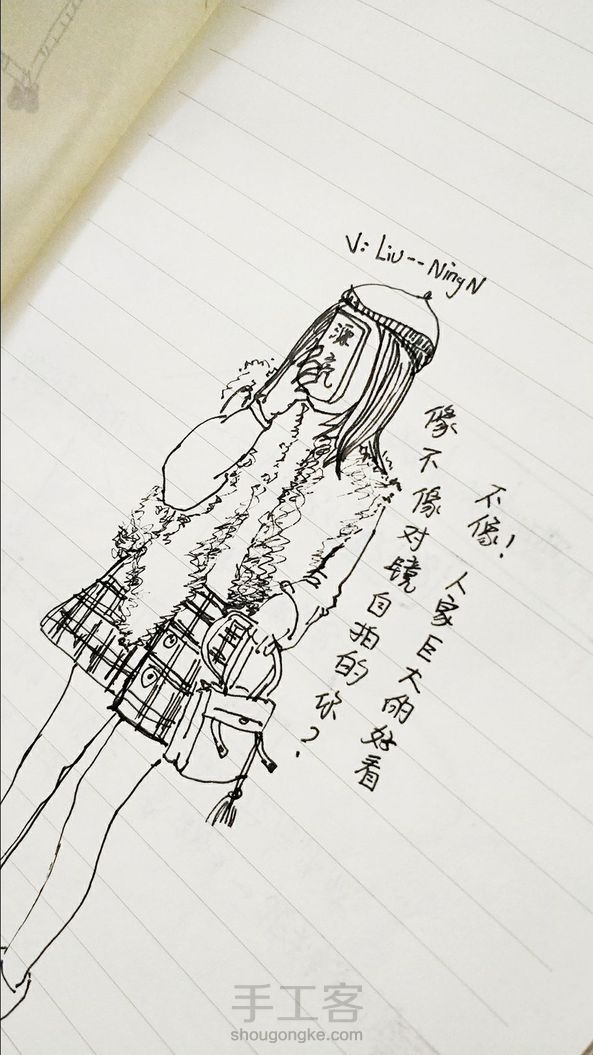 V: Liu--NingN
源
像不像对镜自拍的你?
不像!
人家巨大的好看
手工客
shougongke.com